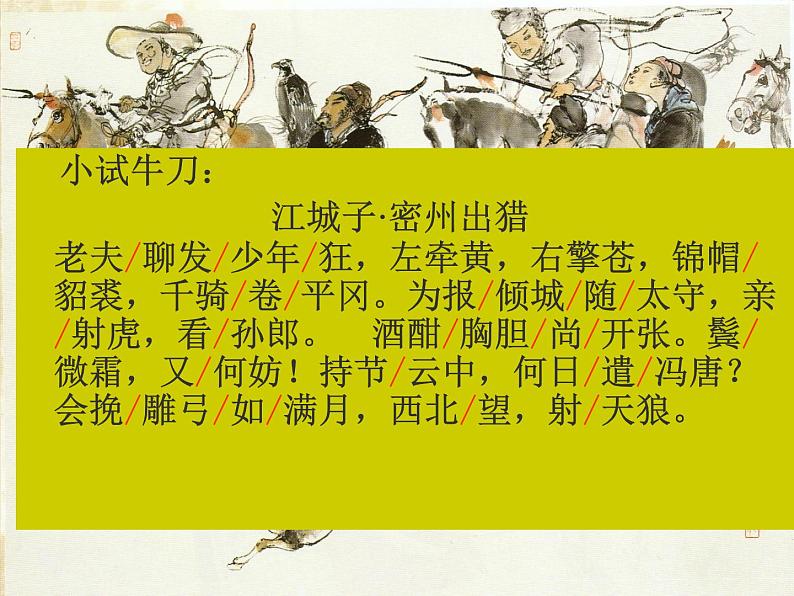 小试牛刀：
江城子·密州出猎
老夫/聊发/少年/狂，左牵黄，右擎苍，锦帽/
貂裘，千骑/卷/平冈。为报/倾城/随/太守，亲
/射虎，看/孙郎。 酒酣/胸胆/尚/开张。鬓/
微霜，又/何妨！持节/云中，何日/遣/冯唐？
会挽/雕弓/如/满月，西北/望，射/天狼。